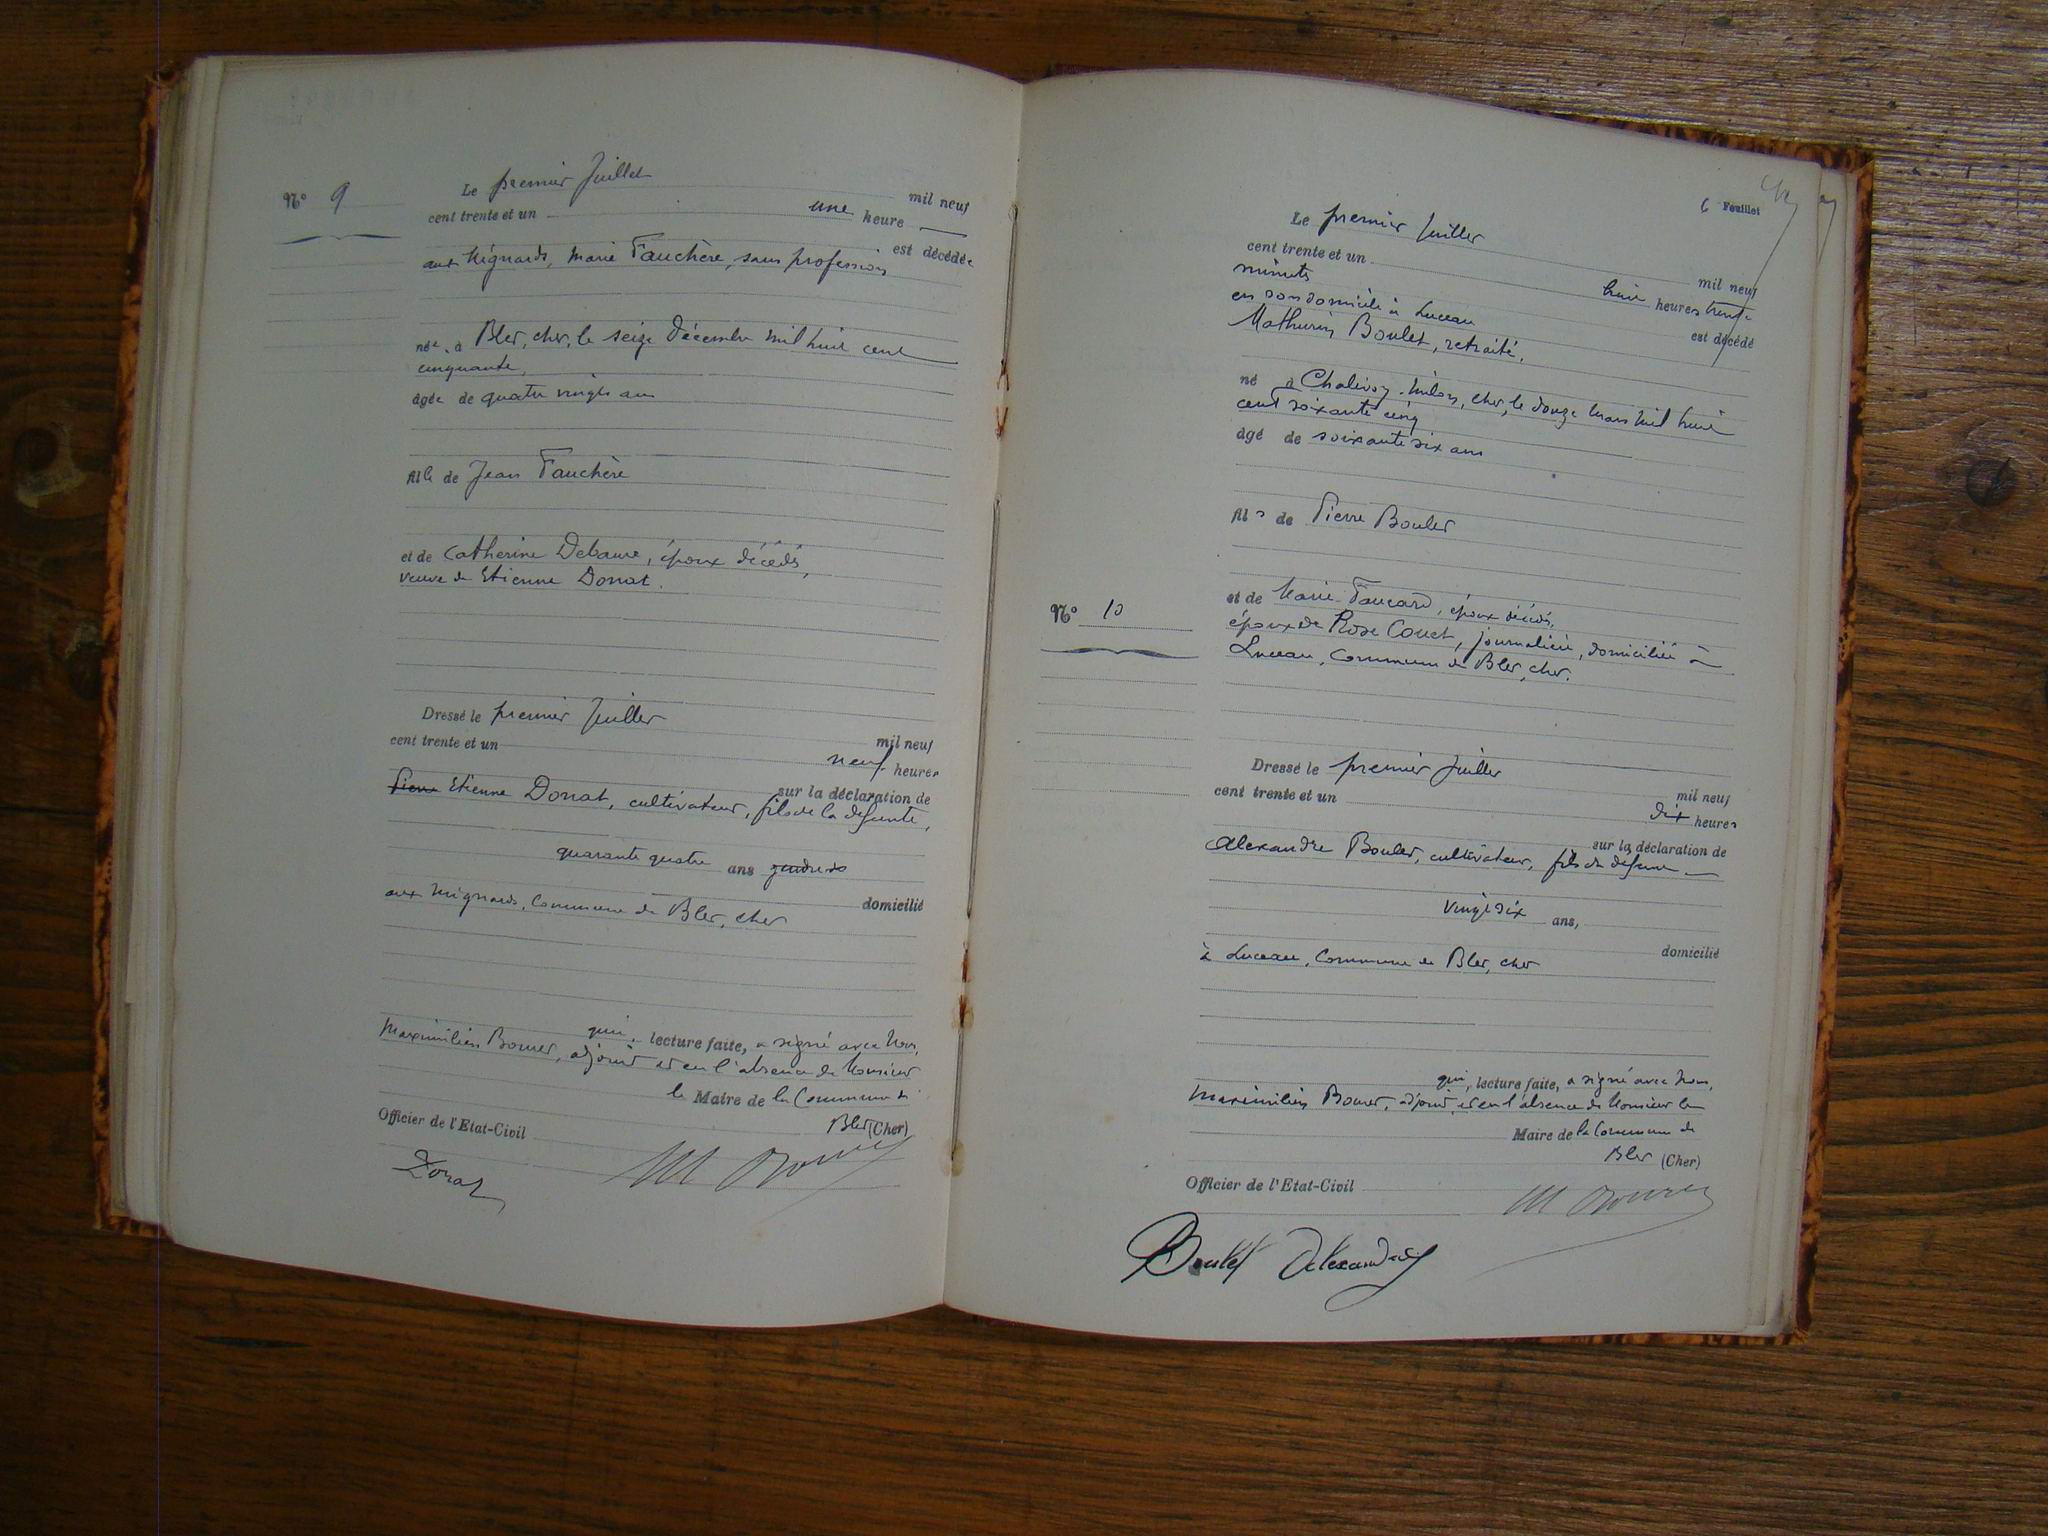 N° 9
Le premier Juillet mil neuf
cent trente et un une heure
est décédée
aux Mignards, Marie Fauchère, sans profession
née à Blet, cher, le seize Décembre mil huit cent
cinquante,
âgée de quatre vingts ans
fille de Jean Fauchère
et de Catherine Debaure, époux décédés,
veuve de Etienne Donat.
Dressé le premier Juillet mil neuf
cent trente et un neuf heures
sur la déclaration de
Pierre Etienne Donat, cultivateur, fils de la défunte,
quarante quatre ans
domicilié
aux Mignards, Commune de Blet, cher
qui, lecture faite, a signé avec Nous,
Maximilien Bourer, adjoint et en l'absence de Monsieur
le Maire de la Commune de
Blet (Cher)
Officier de l'Etat-Civil
Donat
6 Feuillet
N° 10
Le premier Juillet mil neuf
cent trente et un huit heures trente
minutes est décédé
en son domicile à Luceau
Mathurin Boulet, retraité,
né à Chalivoy-Milon, cher, le douze Mars mil huit
cent soixante cinq
âgé de soixante six ans
fils de Pierre Boulet
et de Marie Faucard, époux décédés,
époux de Rose Couet, journalière, domiciliée à
Luceau, Commune de Blet, cher.
Dressé le premier Juillet mil neuf
cent trente et un dix heures
sur la déclaration de
Alexandre Boulet, cultivateur, fils du défunt
vingt six ans,
domicilié
à Luceau, Commune de Blet, cher
qui, lecture faite, a signé avec Nous,
Maximilien Bourer, adjoint, et en l'absence de Monsieur le
Maire de la Commune de
Blet (Cher)
Officier de l'Etat-Civil
Boulet Alexandre